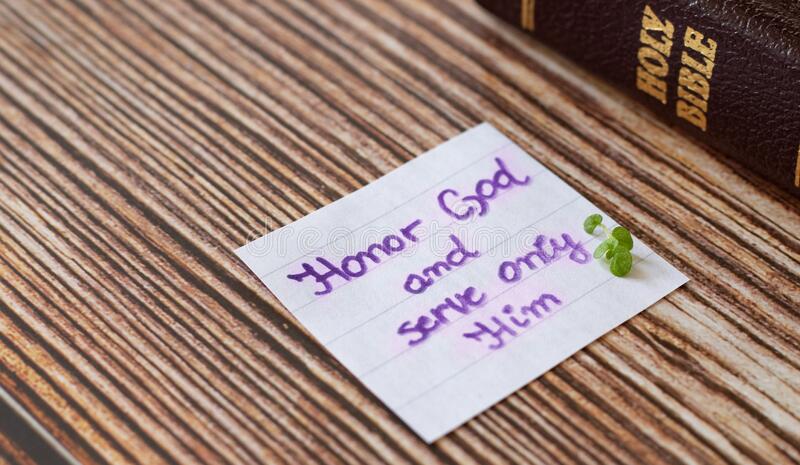 HOLY
BIBLE
Honor God
and
serve only
Him